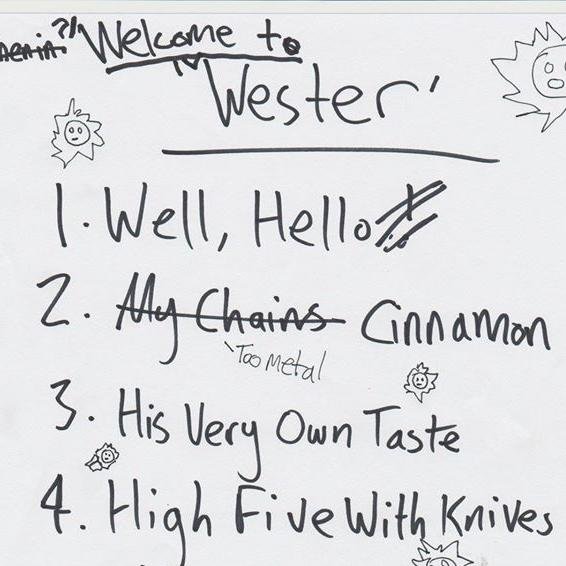 ?! Welcome to
Wester'
1. Well, Hello
2. My Chains Cinnamon
Too metal
3. His Very Own Taste
4. High Five With Knives